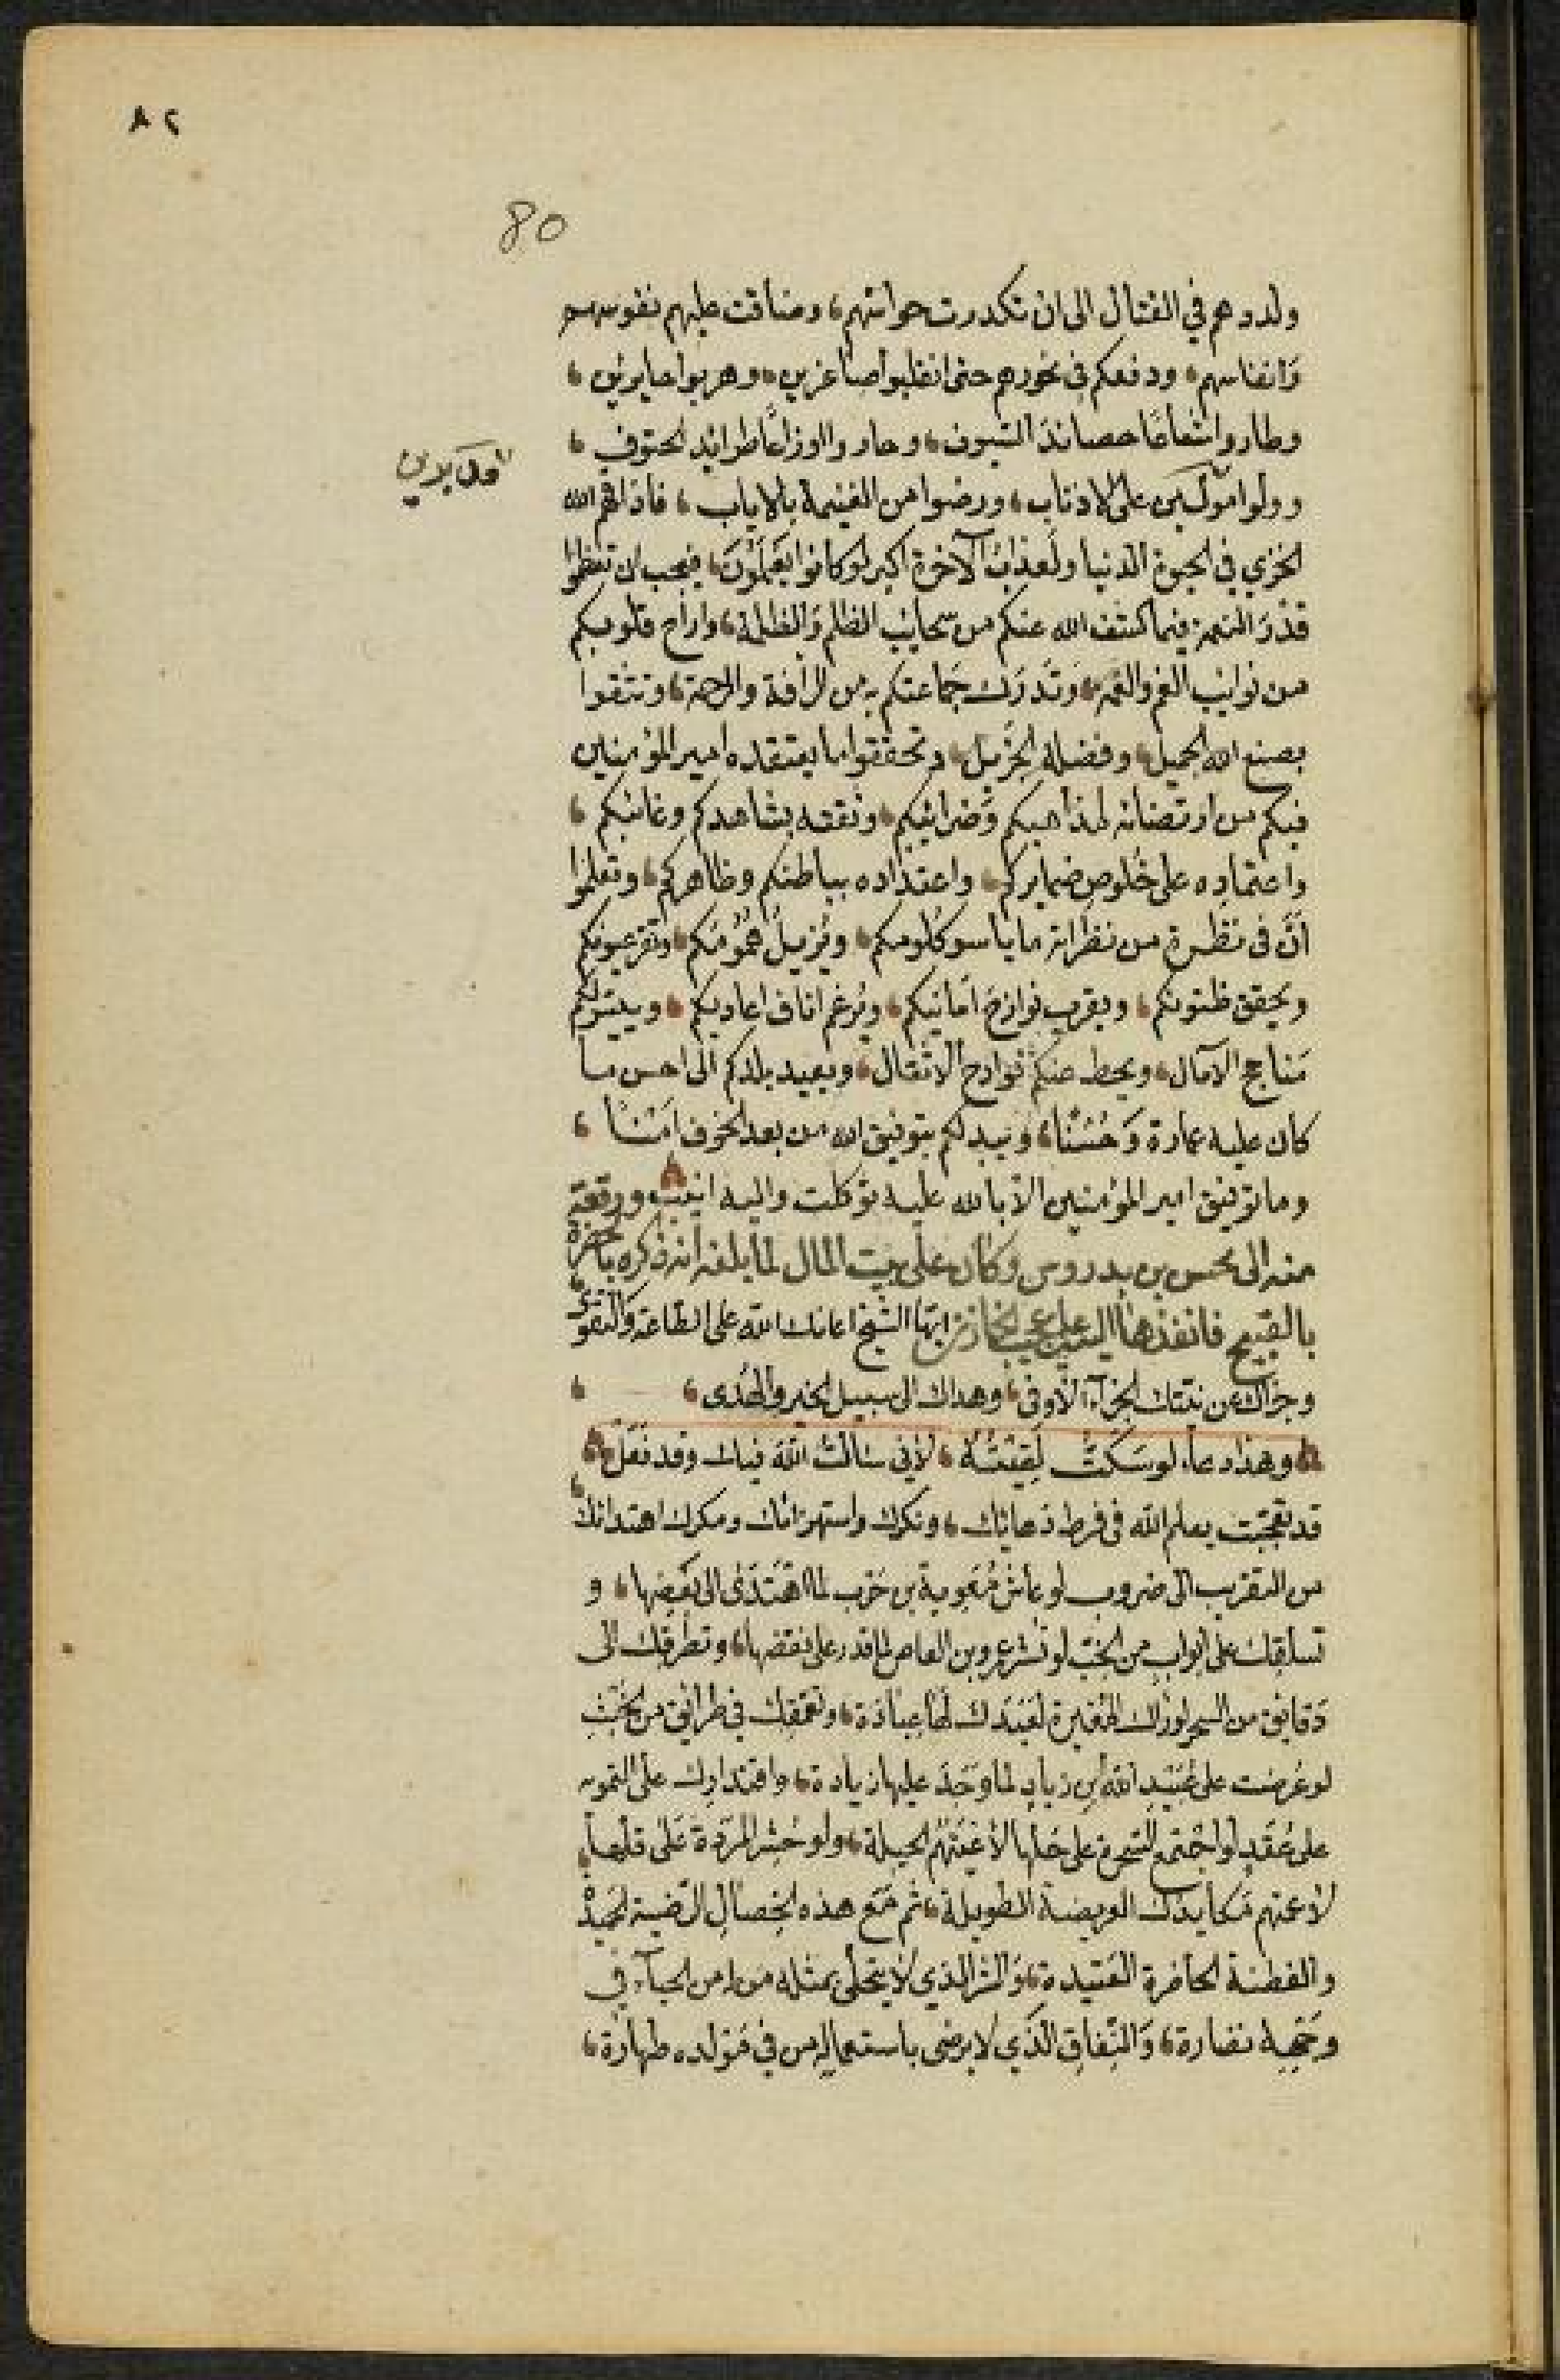 ٨٢
80
ولددهم في القتال الى ان تكدرت حواسهم، وضاقت عليهم نفوسهم
وَانفاسهم، ودفعكم في نحورهم حتى انقلبوا صاغرين، وهربوا حايرين،
وطاروا شعاعًا حصائد السيوف، وحاروا اوزاعًا طرائد الحتوف،
وولوا مولين على الاذناب، ورضوا من الغنيمة بالاياب، فاذاقهم الله
الخزي في الحيوة الدنيا ولَعذابُ الآخرة اكبر لو كانوا يَعْلَمُونَ، فيجب ان تعظموا
قدْرَ النعمة فيما كشف الله عنكم من سحايب الظلم وَالظلمة، واراح قلوبكم
من نوايب الغم والغمه، وتَدَرَك جماعتكم به من الرافة والرحمة، وتثقوا
بصنع الله الجميل، وفضله الجزيل، وتحققوا ما يعتقده امير المؤمنين
فيكم من ارتضائه لمذاهبكم وَضرائبكم، وثقته بشاهدكم وغائبكم،
واعتمادِه على خُلوصِ ضمايركم، واعتداده بباطنكم وظاهركم، وتعلموا
اَنَّ في نظرة من نظراته ما ياسو كُلومكم، ويُزيلُ هُمُومَكم، وتقر عيونكم
ويحقق ظنونكم، ويقرب نوازحَ اَمانيكم، ويُرغم اناف اعاديكم، وييسّر لكم
مَناجح الآمال، ويحط عنكم فوادح الاثقال، ويعيد بلدكم الى احسن ما
كان عليه عمارة وَحُسْنًا، ويبدلكم بتوفيق الله من بعد الخوف اَمْنًا،
وما توفيق امير المؤمنين الا بالله عليه توكلت واليه انيب ورقعة
منه الى محسن بن بدروس وكان على بيت المال لما بلغه انه ذكره بالحضرة
بالقبيح فانفذها اليه ايها الشيخ اعانك الله على الطاعة وَالتقوى
وجزاك عن نيتك الجزآء الاوفى، وهداك الى سبيل الخير والهُدى،
وهذا دعاء لو سَكَتُّ كُفِيتُهُ، لاني سالتُ اللّهَ فيك وقد فَعَل
قد تعجبت يعلم الله في فرط دهائك، ونكرك واستهزائك ومكرك اهتدائك
من التقريب الى ضروب لو عاش مُعَوية بن حَرب لما اهْتَدَى الى بَعضها، و
تسلقك على ابوابٍ من الخبّ لو نُشر عمرو بن العاص لما قدر على نقضها، وتطرقك الى
دَقايق من السحر لو راك المغيرة لعَبَدك لها عبادة، وتعمقك في طرائق من الخُبْثِ
لو عُرضت على عُبَيد الله بن زيادٍ لما وَجَدَ عليها زيادة، واقتدارك على التمويه
على عُقَدٍ لو اجْتمع السَحرة على حَلها لاعْيَتْهُم الحيلة، ولو حُشر المَرَدة عَلى قلعها،
لاعمتهم مَكايدك العريضة الطويلة، ثم مَعَ هذه الخِصالِ الرَضية الحميدة
والفطنة الحاضرة العَتيدة، وَالشر الذي لا يتحلى بمثله من له من الحيآء في
وَجهِه نضارة، وَالنِّفاقِ الّذَي لا يرضى باستعمالِه من في مَوْلده طهارَة،